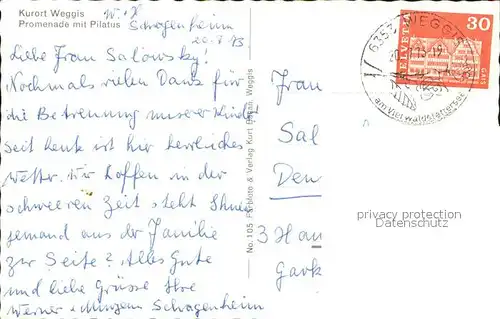 Kurort Weggis
Promenade mit Pilatus
Schragenheim
20.7.73
Liebe Frau Salowsky!
Nochmals vielen Dank für
die Betreuung unserer Kinder!
Seit heute ist hier herrliches
Wetter. Wir hoffen in der
schweren Zeit steht Ihnen
jemand aus der Familie
zur Seite? Alles Gute
und liebe Grüsse Ihre
Werner + Schragenheim
No. 105 Verlag Kurt Weggis
Frau
Sal
Den
3 Han
Gark
6353 WEGGIS
am Vierwaldstättersee
HELVETIA
30
GAIS
privacy protection
Datenschutz